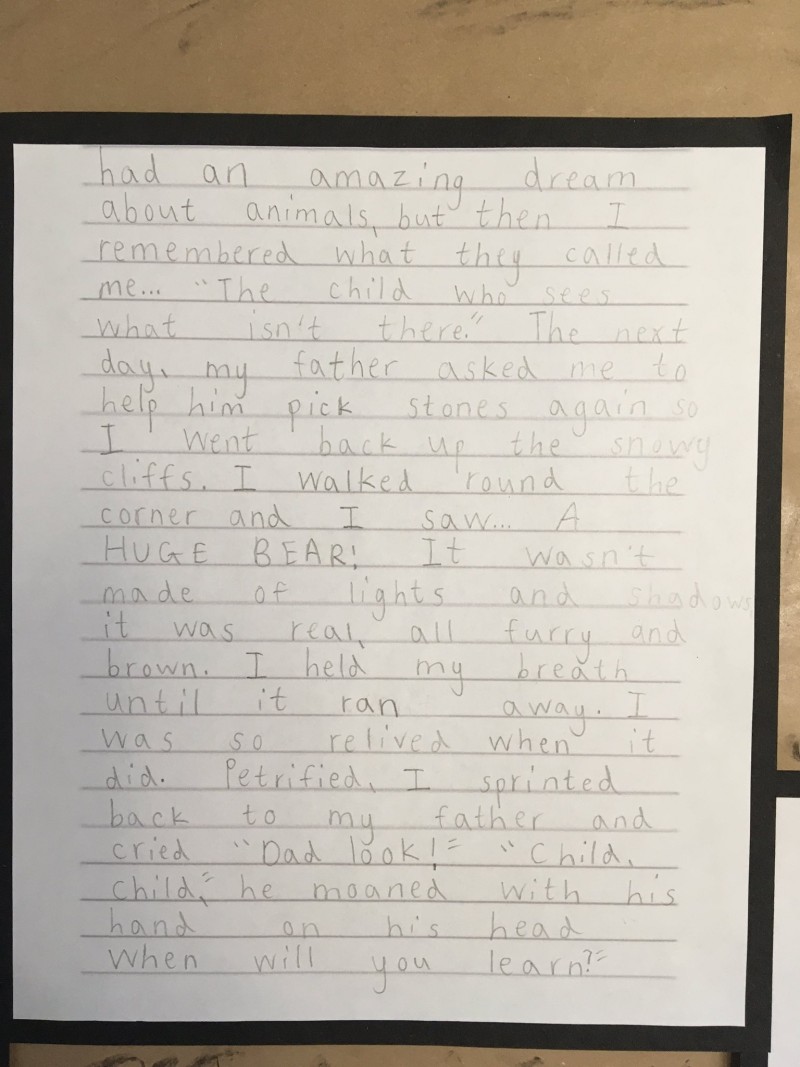 had an amazing dream
about animals, but then I
remembered what they called
me... "The child who sees
what isn't there." The next
day, my father asked me to
help him pick stones again so
I went back up the snowy
cliffs. I walked 'round the
corner and I saw... A
HUGE BEAR! It wasn't
made of lights and shadows
it was real, all furry and
brown. I held my breath
until it ran away. I
was so relived when it
did. Petrified, I sprinted
back to my father and
cried "Dad look!" "Child,
child," he moaned with his
hand on his head
When will you learn?"